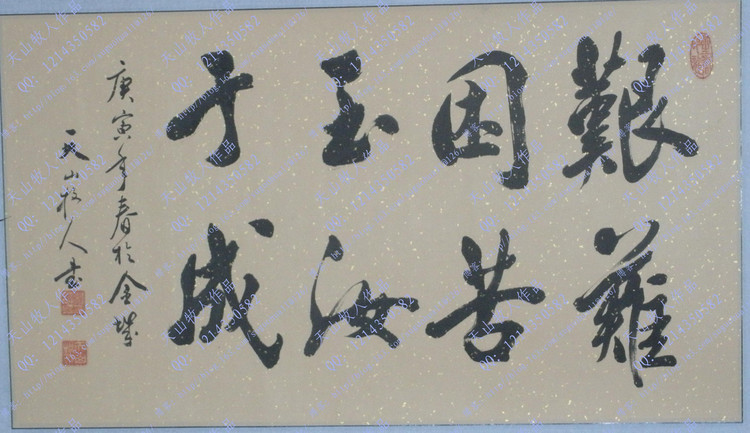 艱難
困苦
玉汝
于成
庚寅年春於金城
天山牧人書
天山牧人作品
QQ：1214350582